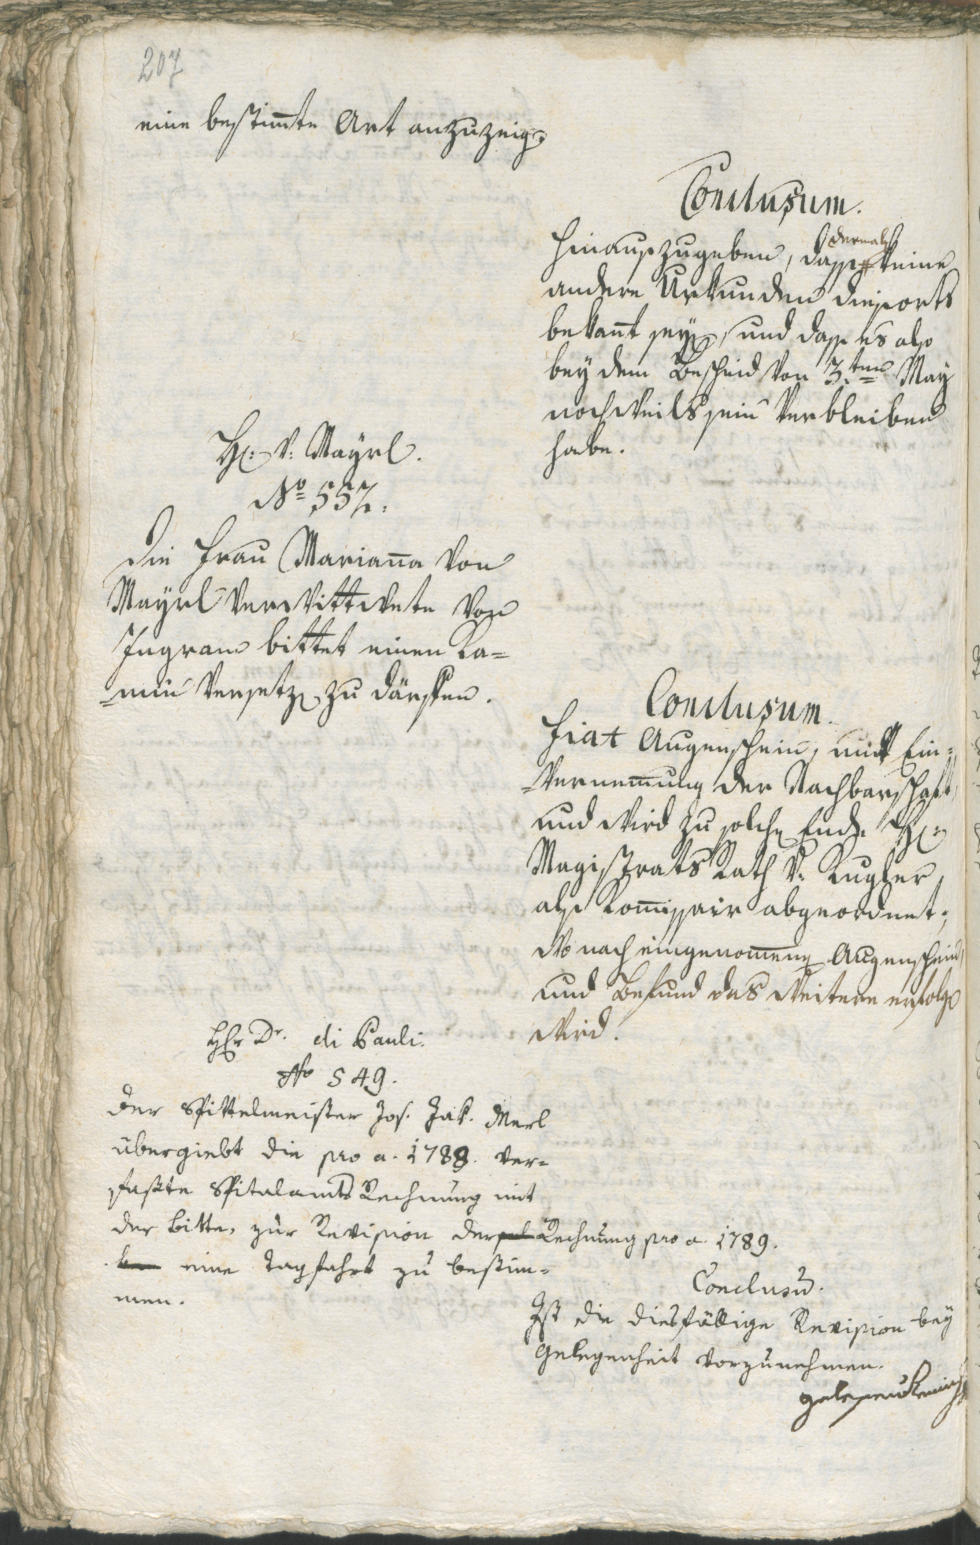 207
eine bestim̄te Art anzuzeigen
Conclusum.
Hinauszugeben, daß dermals keine
andere Urkunden diesorts
bekan̄t seyn, und daß es also
bey dem Bescheid von 3.ten May
noch weils sein Verbleiben
habe.
H: v: Mayrl.
No 557.
Die Frau Mariana von
Mayrl verwittwete von
Ingram bittet einen Ka=
min versetzen zu därffen.
Conclusum.
Fiat Augenschein, mit Ein=
vernem̄ung der Nachbarschaft,
und wird zu solchen Ende H:
Magistrats Rath v: Kugler
als Kom̄issair abgeordnet;
wo nach eingenom̄enen Augenschein,
und Befund das weitere erfolgen
wird.
Hr Dr. di Pauli.
No 549.
Der Spittelmeister Jos. Jak. Merl
übergiebt die pro a. 1788. ver=
faßte Spitalamts Rechnung mit
der Bitte, zur Revision der Rechnung pro a. 1789.
eine Tagfahrt zu bestim=
men.
Conclusū.
Ist die diesfällige Revision bey
Gelegenheit vorzunehmen.